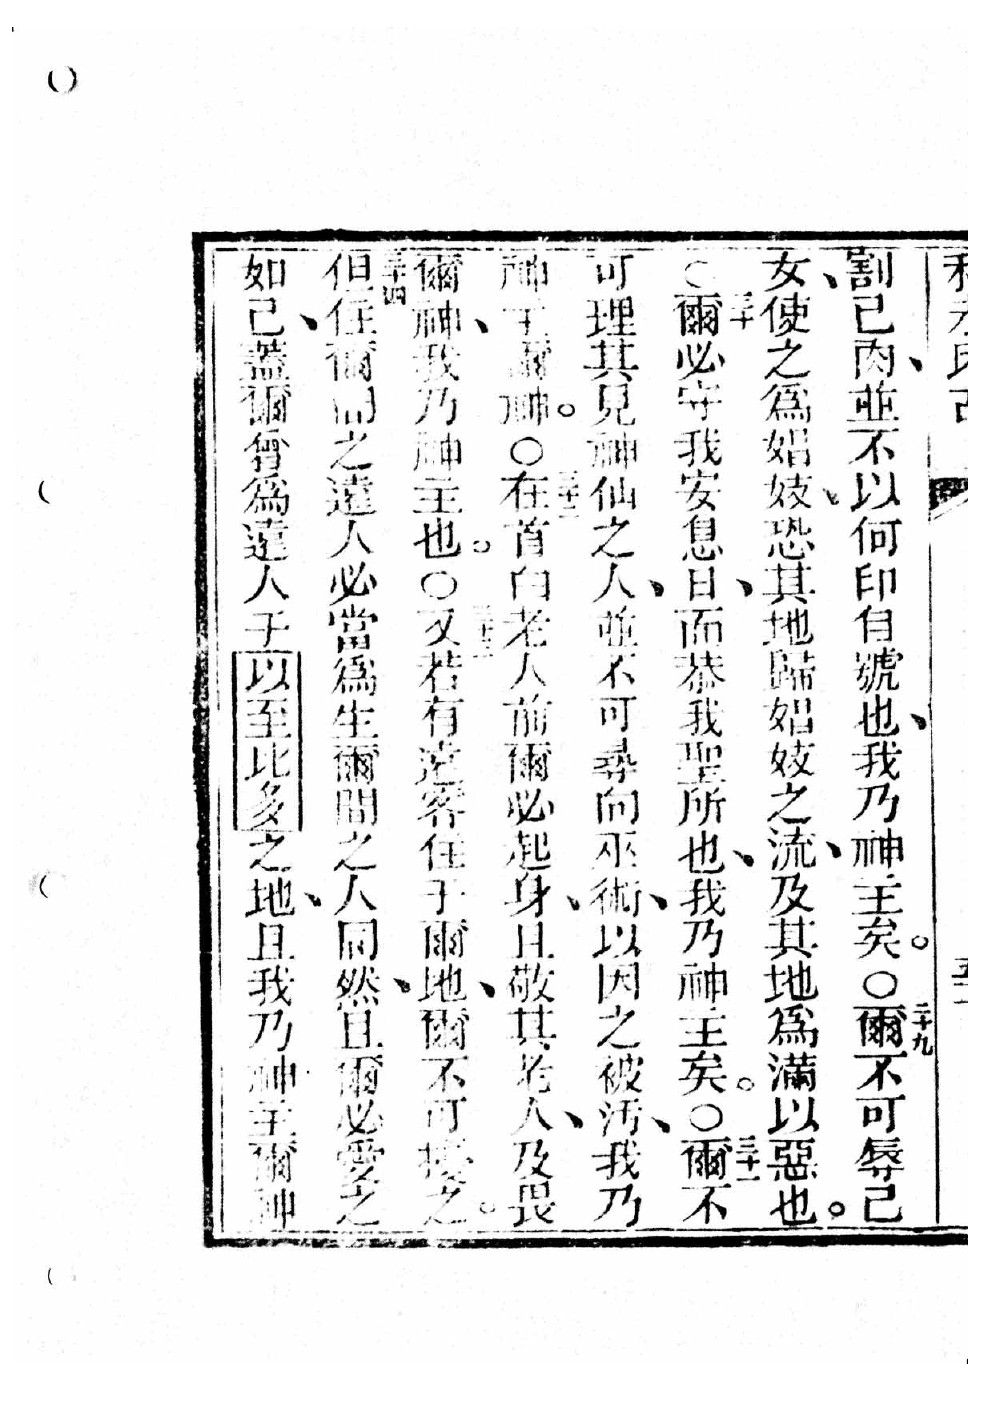 割己肉、並不以何印自號也、我乃神主矣。〇二十九爾不可辱己
女、使之爲娼妓、恐其地歸娼妓之流、及其地爲滿以惡也。
〇三十爾必守我安息日、而恭我聖所也、我乃神主矣。〇三十一爾不
可理其見神仙之人、並不可尋向巫術、以因之被汚、我乃
神主爾神。〇三十二在首白老人前爾必起身、且敬其老人、及畏
爾神、我乃神主也。〇三十三又若有遠客住于爾地、爾不可擾之。
三十四但住爾間之遠人必當爲生爾間之人同然、且爾必愛之
如己、蓋爾曾爲遠人于以至比多之地、且我乃神主爾神